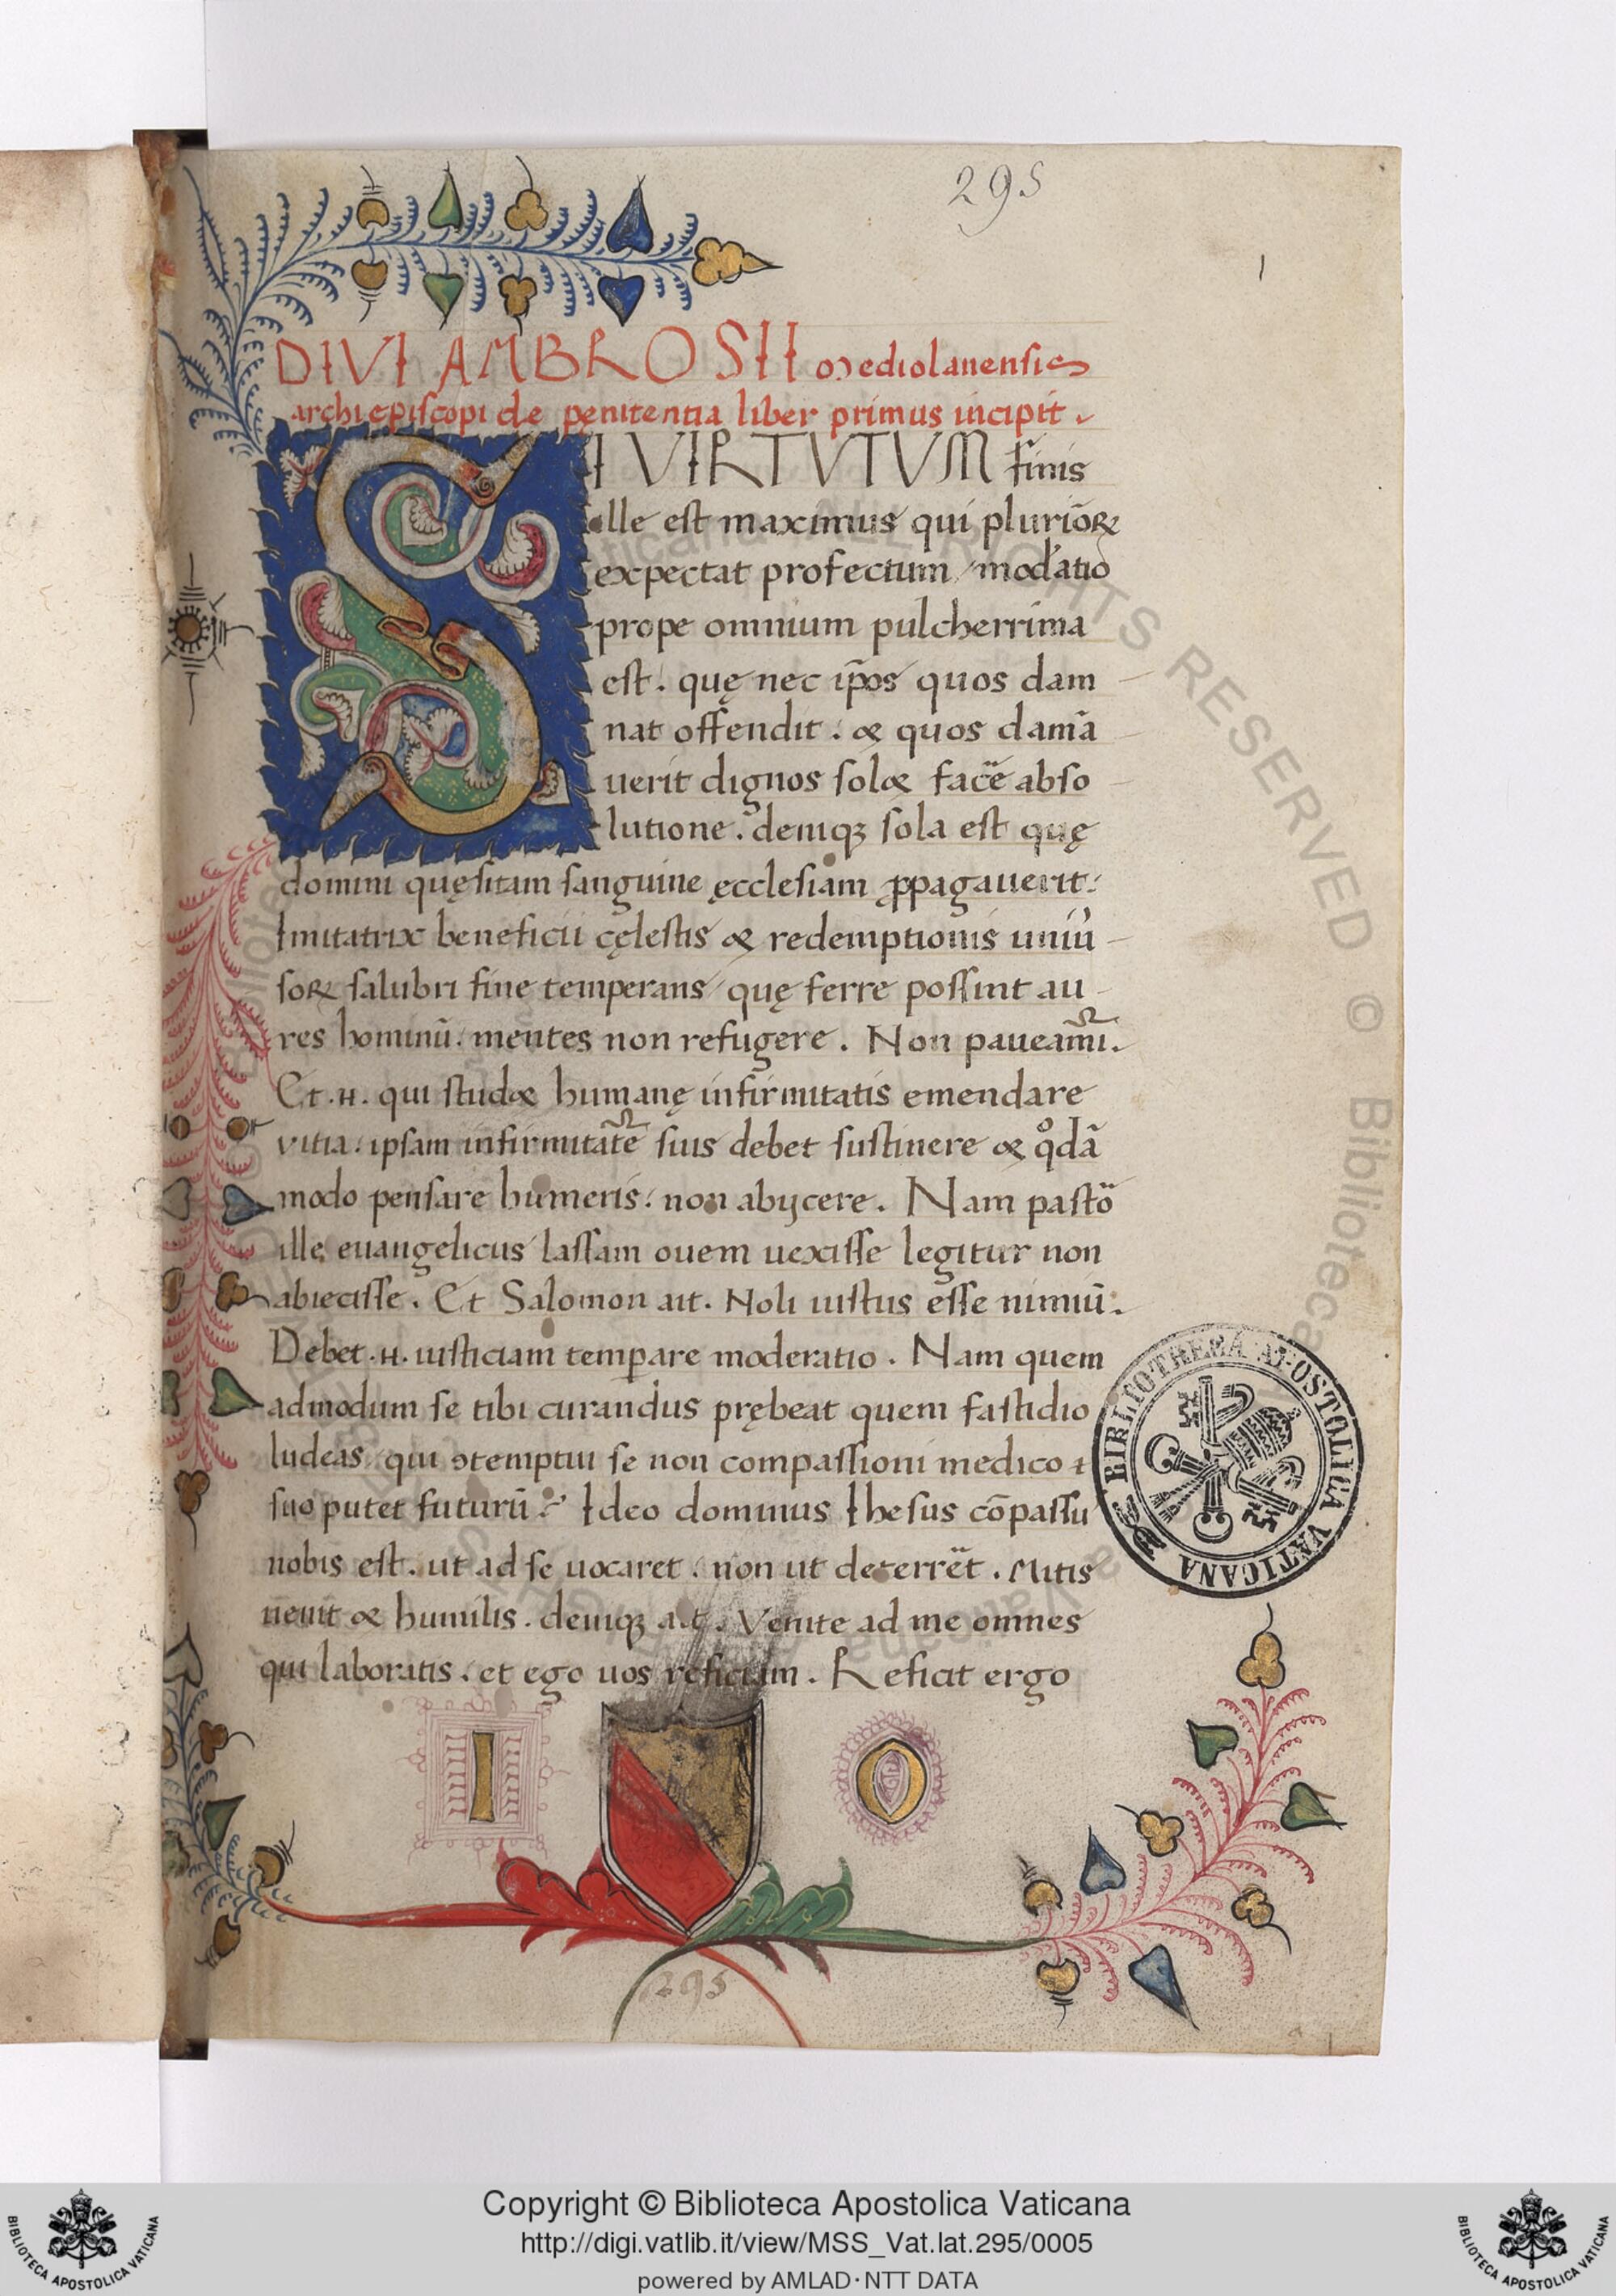 295
1
DIVI AMBROSII Mediolanensis
archiepiscopi de pęnitentia liber primus incipit .
SI VIRTVTVM finis
ille est maximus qui pluriōꝝ
expectat profectum / mod'atio
prope omnium pulcherrima
est . quę nec ip̄os quos dam
nat offendit : & quos damā
uerit dignos sol& fac̄e abso
lutione . deniqꝫ sola est quę
domini quęsitam sanguine ęcclesiam ꝓpagauerit :
Imitatrix beneficii cęlestis & redemptionis uniu͛
soꝝ salubri fine temperans / quę ferre possint au
res hominū : mentes non refugere . Non paueam̄i .
Et .H. qui stud& humanę infirmitatis emendare
vitia : ipsam infirmitatē suis debet sustinere & qͦdā
modo pensare humeris : non abijcere . Nam pasto͛
ille euangelicus lassam ouem uexisse legitur non
abiecisse . Et Salomon ait . Noli iustus esse nimiū .
Debet .H. iusticiam temꝑare moderatio . Nam quem
admodum se tibi curandus prębeat quem fastidio
ludeas / qui ɔtemptui se non compassioni medico
suo putet futurū ? Ideo dominus Ihesus cōpassu
nobis est . ut ad se uocaret : non ut deterret̄ . Mitis
uenit & humilis . deniqꝫ ait . Venite ad me omnes
qui laboratis . et ego uos reficiam . Reficit ergo
I O
295
BIBLIOTHECA APOSTOLICA VATICANA
Copyright © Biblioteca Apostolica Vaticana
http://digi.vatlib.it/view/MSS_Vat.lat.295/0005
powered by AMLAD·NTT DATA
BIBLIOTECA APOSTOLICA VATICANA
BIBLIOTECA APOSTOLICA VATICANA